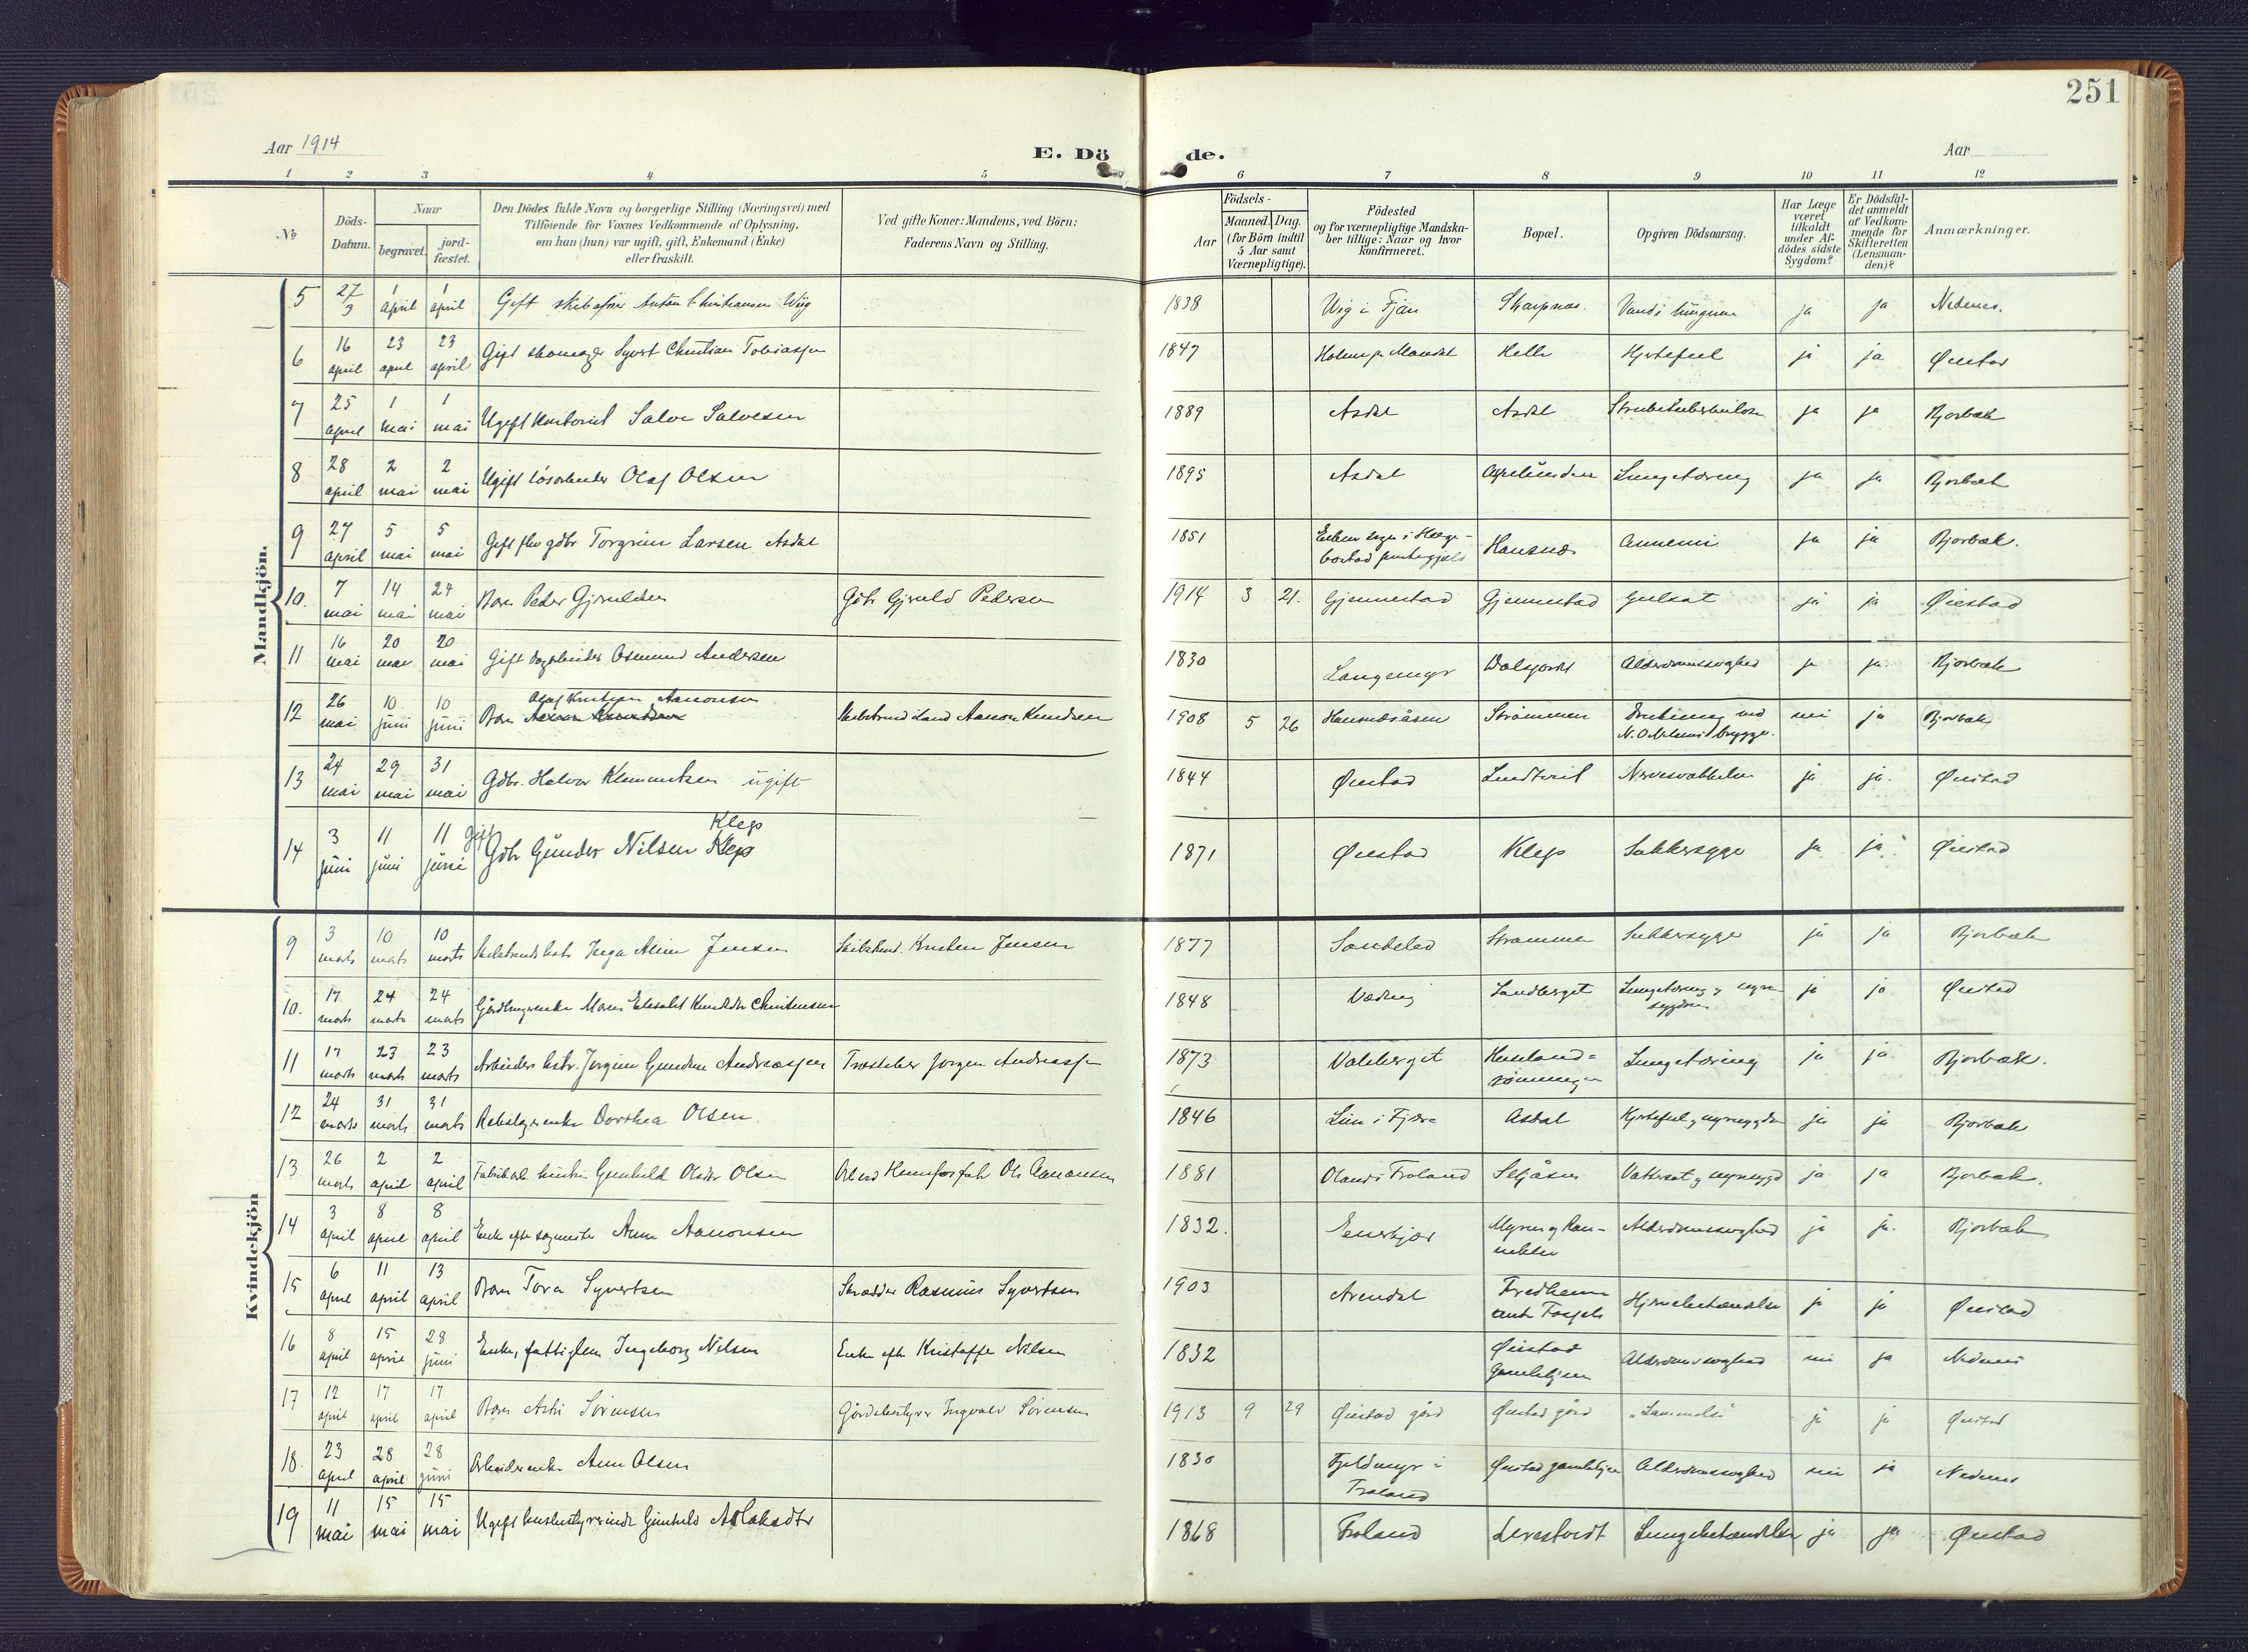 251
Aar 1914
E. Dö
de.
Aar
1 2 3 4 5 6 7 8 9 10 11 12
No
Döds-
Datum.
Naar
begravet.
jord-
fæstet.
Den Dödes fulde Navn og borgerlige Stilling (Næringsvei) med
Tilföiende for Voxnes Vedkommende af Oplysning,
om han (hun) var ugift, gift, Enkemand (Enke)
eller fraskilt.
Ved gifte Koner: Mandens, ved Börn:
Faderens Navn og Stilling.
Födsels-
Aar
Maaned. Dag.
(for Börn indtil
5 Aar samt
Værnepligtige).
Födested
og for værnepligtige Mandska-
ber tillige: Naar og hvor
konfirmeret.
Bopæl.
Opgiven Dödsaarsag.
Har Læge
været
tilkaldt
under Af-
dödes sidste
Sygdom?
Er Dödsfal-
det anmeldt
af Vedkom-
mende for
Skifteretten
(Lensman-
den)?
Anmærkninger.
Mandkjön.
5 27/3 1 april 1 april Gift Anton Christiansen Wiig 1838 Wig i Fjære Skarpnes Vand i lungerne ja ja Nedenes.
6 16 april 23 april 23 april Gift skomager Syvert Christian Tobiassen 1847 Holum p. Mandal Helle Hjertefeil ja ja Øiestad
7 25 april 1 mai 1 mai Ugift kontorist Salve Salvesen 1889 Asdal Asdal Strubetuberkulose ja ja Bjorbæk
8 28 april 2 mai 2 mai Ugift løsarbeider Olaf Olsen 1895 Asdal Lungetæring ja ja Bjorbæk
9 27 april 5 mai 5 mai Gift gdbr Torgrim Larsen Asdal 1851 Eiken sogn i Hæge-
bostad prestegjæld Hansnes Annemi ja ja Bjorbæk.
10. 7 mai 14 mai 24 mai Barn Peder Gjeruldsen Gdbr Gjeruld Pedersen 1914 3 21. Gjennestad Gjennestad Gulsot ja ja Øiestad
11 16 mai 20 mai 20 mai Gift dagarbeider Osmund Andersen 1830 Langemyr Dalsjordet Alderdomssvaghed ja ja Bjorbæk
Olaf Kristian Aanonsen
12 26 mai 10 juni 10 juni Barn Aanon Knudsen Aanon Knudsen 1908 5 26 Hansnesåsen Strømmen Drukning ved
brygge. nei ja Bjorbæk
13 24 mai 29 mai 31 mai Gdbr. Halvor Klemmetsen ugift 1844 Øiestad Lindtveit ja ja. Øiestad
Klep
14 3 juni 11 juni 11 juni gift Gdbr Gunder Nilsen Klep 1871 Øiestad Klep Sukkersyge ja ja Øiestad
Kvindekjön
9 3 marts 10 marts 10 marts Inga Aline Jensen Kristen Jensen 1877 Søndeled Strømmen Sukkersyge ja ja Bjorbæk
10. 17 marts 24 marts 24 marts Maren Elisabet Christensen 1848 Sandberget Lungetæring og nyre-
sygdom ja ja Øiestad
11 17 marts 23 marts 23 marts Arbeiders hstr. Jørgine Gundine Andreassen Jørgen Andreassen 1873 Valeberget Lungetæring ja ja Bjorbæk.
12 24 marts 31 marts 31 marts Dorthea Olsen 1846 i Fjære Asdal Hjertefeil og nyresygdom ja ja Bjorbæk
13 26 marts 2 april 2 april Gunhild Olsdtr Olsen Ole Aanonsen 1881 Oland i Froland Seljåsen Vattersot og nyresygd ja ja Bjorbæk.
14 3 april 8 april 8 april Enke efter Anne Aanonsen 1832. Alderdomssvaghed ja ja. Bjorbæk
15 6 april 11 april 13 april Barn Tora Syvertsen Skrædder Rasmus Syvertsen 1903 Arendal Fredheim
Hjernebetændelse ja ja Øiestad
16 8 april 15 april 28 juni Enke, fattiglem Ingeborg Nilsen Enke efter Kristoffer Nilsen 1832 Øiestad
Gamlehjem Alderdomssvaghed nei ja Nedenes
17 12 april 17 april 17 april Barn Sørensen Gårdsbestyrer Ingvald Sørensen 1913 9 29 Øiestad gård Øiestad gård ja ja Øiestad
18. 23 april 28 april 28 juni Arbeiderenke Anne Olsen 1830 Fjeldmyr i
Froland Øiestad gamlehjem Alderdomssvaghed nei ja Nedenes
19 11 mai 15 mai 15 mai Ugift husbestyrerinde Gunhild Aslaksdtr 1868 Froland Løvestvedt Lungebetændelse ja ja Øiestad